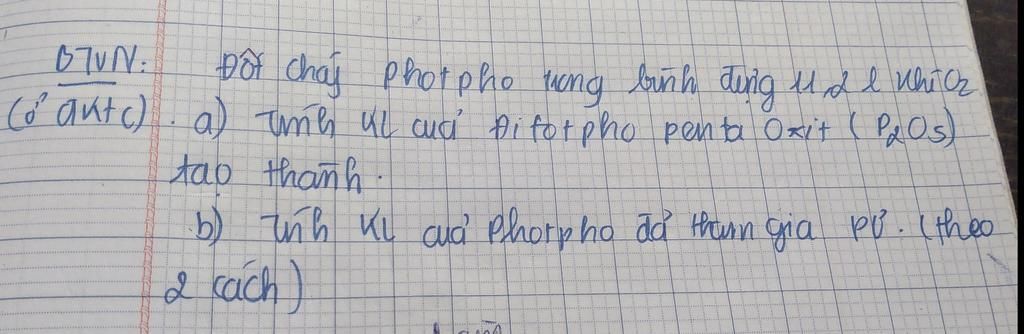 BTVN: Đốt cháy photpho trong bình đựng 11,2 l khí O2
(ở đktc). a) Tính KL của điphotpho penta Oxit (P2O5)
tạo thành.
b) Tính KL của Photpho đã tham gia PƯ. (theo
2 cách)